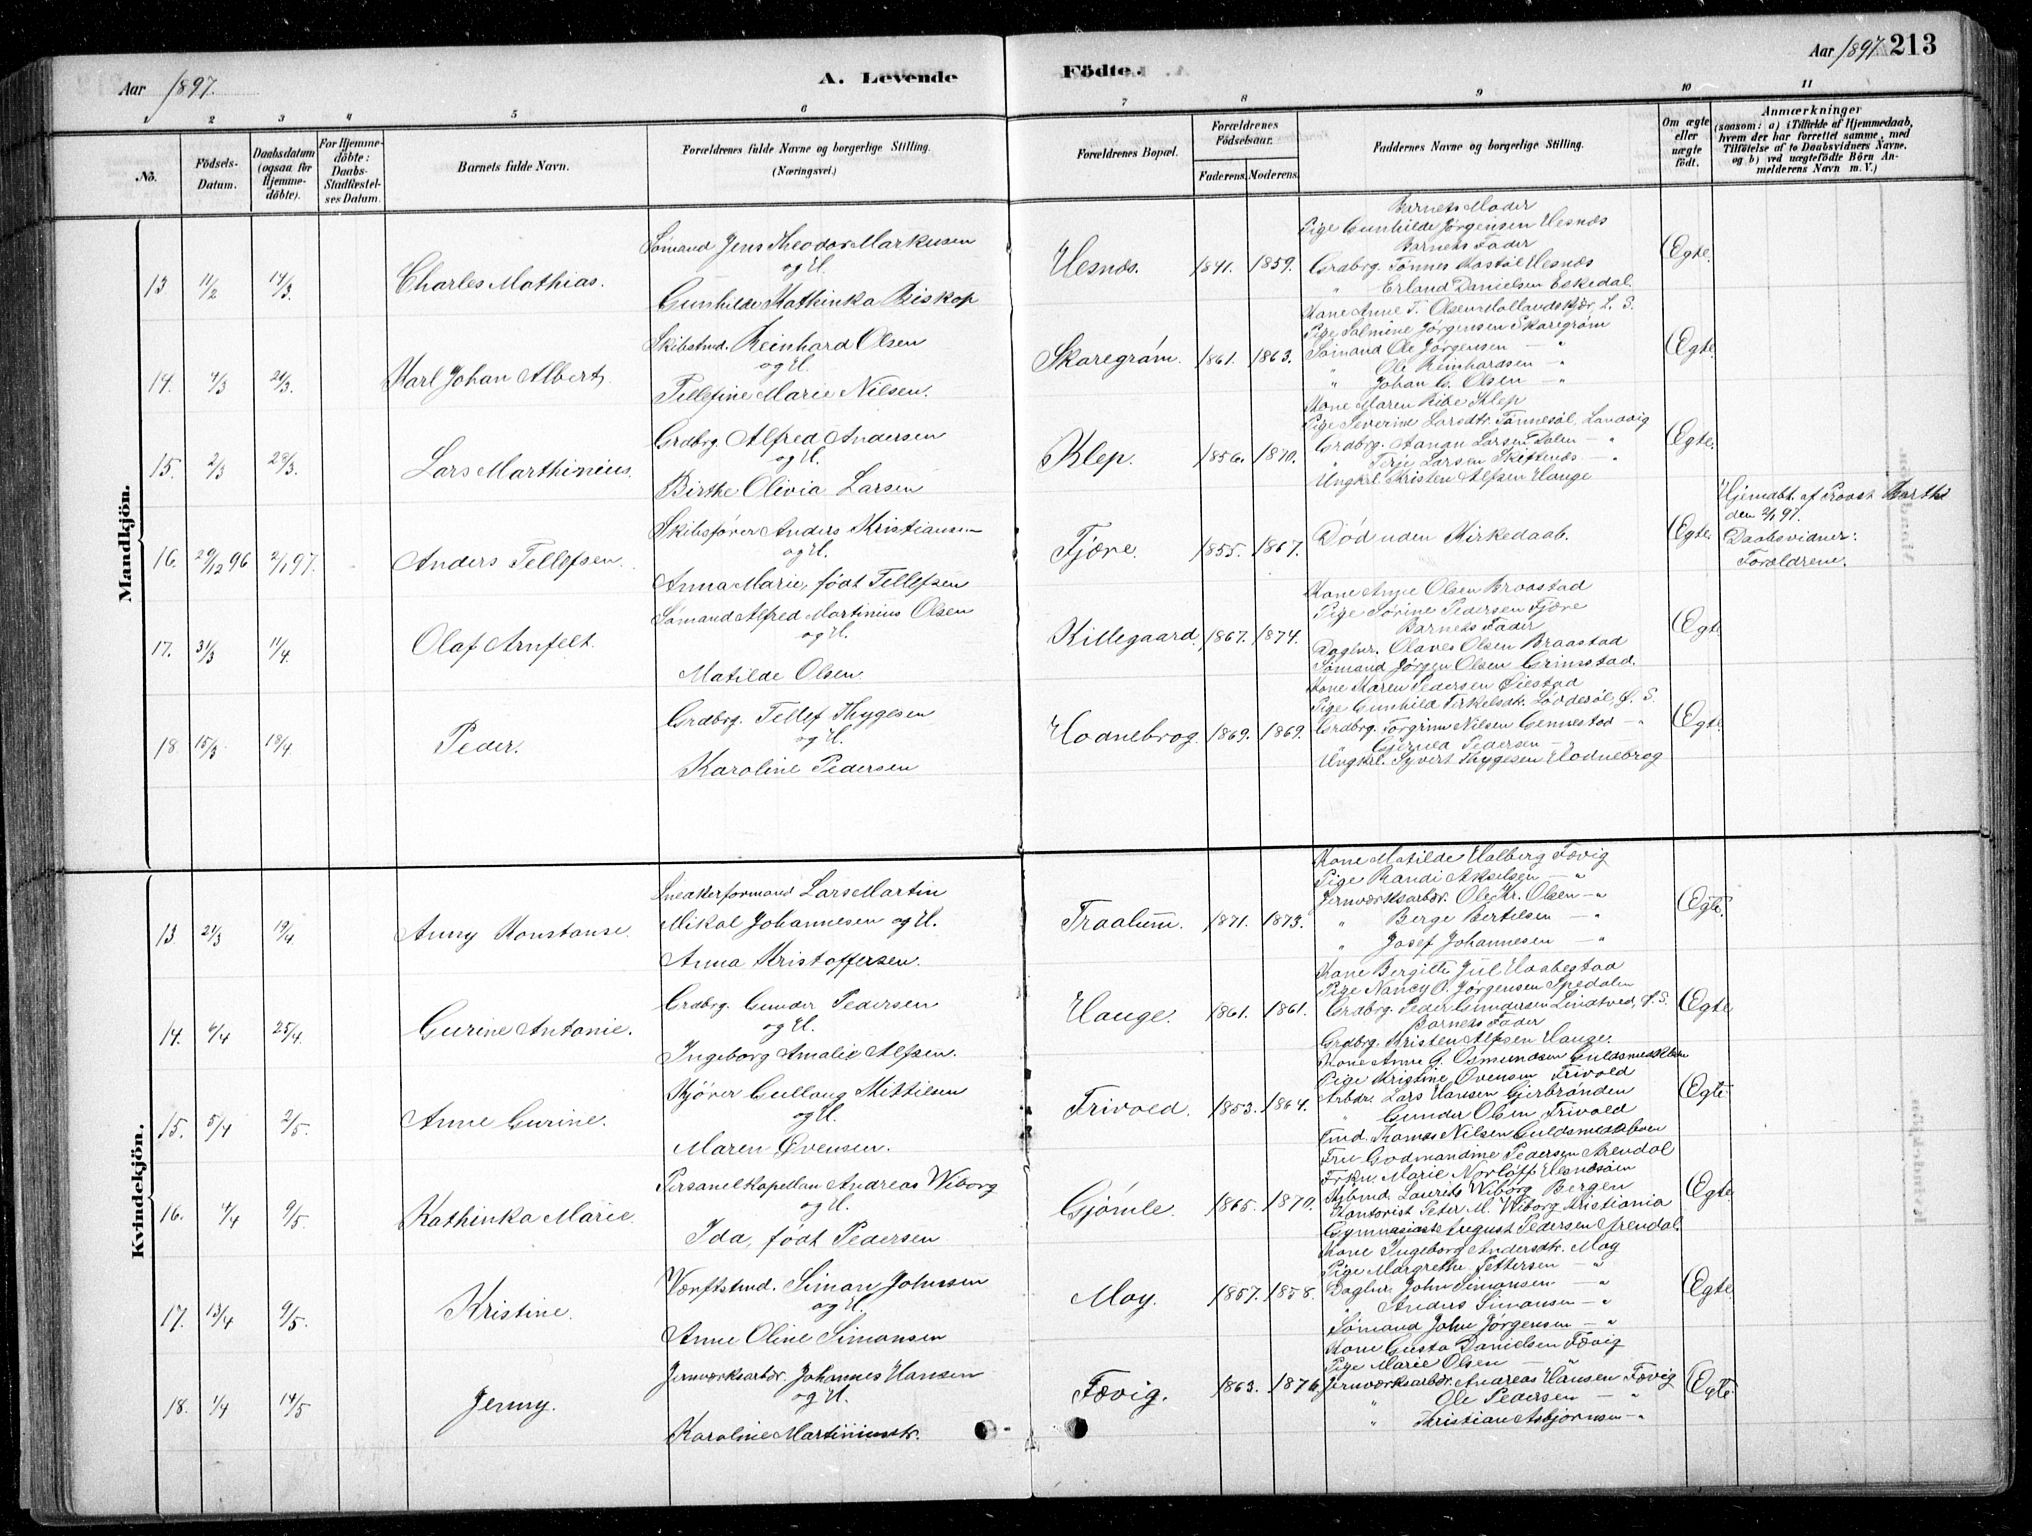 Aar 1897.
A. Levende
Födte.
Aar 1897. 213
1 2 3 4 5 6 7 8 9 10 11
No.
Födsels-Datum.
Daabsdatum (ogsaa for Hjemme-döbte).
For Hjemme-döbte: Daabs-Stadfæstel-ses Datum.
Barnets fulde Navn.
Forældrenes fulde Navne og borgerlige Stilling. (Næringsvei.)
Forældrenes Bopæl.
Forældrenes Födselsaar.
Faderens. Moderens.
Faddernes Navne og borgerlige Stilling.
Om ægte eller uægte födt.
Anmærkninger (saasom: a) i Tilfælde af Hjemmedaab, hvem der har forrettet samme, med Tilföielse af to Daabsvidners Navne, og b) ved uægtefödte Börn An-melderens Navn m. V.)
Mandkjön.
13 11/2 14/3. Charles Mathias.
Sømand Jens Theodor Markusen
og H.
Gunhilde Kathinka Biskop
Hesnæs. 1841. 1859.
Barnets Moder
Pige Gunhilde Jørgensen Hesnæs
Barnets Fader
Grdbrg. Tønnes Kastøl Hesnæs
" Erland Danielsen Eskedal
Egte.
14. 4/3 21/3. Karl Johan Albert.
Skibstmd. Reinhard Olsen
og H.
Tellefine Marie Nilsen.
Skaregrøm. 1861. 1863.
Kone Anne T. Olsen
Pige Salmine Jørgensen Skaregrøm
Sømand Ole Jørgensen — "
" Ole Reinhardsen — "
" Johan G. Olsen — "
Egte.
15. 2/3 28/3. Lars Marthinius.
Grdbrg. Alfred Andersen
og H.
Birthe Olivia Larsen
Klep. 1856. 1870.
Kone Maren Ribe Klep
Pige Severine Larsdtr. Tønnesøl, Landvig
Grdbrg. Aanon Larsen Dalen — "
" Terje Larsen Skiftenæs — "
Ungkrl. Kristen Alfsen Hauge
Egte.
16. 29/12 96 2/1 97. Anders Tellefsen.
Skibsfører Anders Kristiansen
og H.
Anna Marie, født Tellefsen
Fjære. 1855. 1867.
Død uden Kirkedaab.
Egte.
Hjemdbt. af Provst Barth
den 2/1 97.
Daabsvidner:
Forældrene.
17. 31/3 11/4. Olaf Arnfelt.
Sømand Alfred Martinius Olsen
og H.
Matilde Olsen
Killegaard. 1867. 1874.
Kone Anne Olsen Braastad
Pige Tørine Pedersen Fjære
Barnets Fader
Daglnr. Olaves Olsen Braastad
Sømand Jørgen Olsen Grimstad.
Egte
18. 15/3. 18/4 Peder.
Grdbrg. Tellef Thygesen
og H.
Karoline Pedersen
Hodnebrog. 1869. 1869.
Kone Maren Pedersen Øiestad
Pige Gunhild Terkelsdtr. Løddesøl, Ø. S.
Grdbrg. Torgrim Nilsen Gennestad — "
" Gjerued Pedersen —
Ungkrl. Syvert Thygesen Hodnebrog
Egte
Kvindekjön.
13 21/3 19/4. Anny Konstanse.
Sneakerformand Lars Martin
Mikal Johannesen og H.
Anna Kristoffersen.
Traalum. 1871. 1873.
Kone Matilde Halberg Fævig
Pige Randi Akselsen — "
Jernværksarbdr. Ole Kr. Olsen — "
" Berge Bertelsen — "
" Josef Johannesen — "
Egte.
14. 6/4 25/4. Gurine Antonie.
Grdbrg. Gunder Pedersen
og H.
Ingeborg Amalie Alfsen.
Hauge. 1861. 1861.
Kone Bergitte Jul Haabestad
Pige Nancy O. Jørgensen Spedalen
Grdbrg. Peder Gundersen Lindtved, Ø. S.
Barnets Fader
Grdbrg. Kristen Alfsen Hauge.
Egte
15. 5/4 2/5. Anne Gurine.
Kjører Gullaug Mikkelsen
og H.
Maren Ovensen.
Frivold. 1853. 1864.
Kone Anne G. Osmundsen Guldsmedklben
Pige Kristine Ovensen Frivold
Arbdr. Lars Hansen Gjerbrønden
" Gunder Olsen Frivold
Tmd. Thomas Nilsen Guldsmedklben
Egte
16. 4/4 9/5. Kathinka Marie.
Personelkapellan Andreas Wiborg
og H.
Ida, født Pedersen
Gjømle. 1865. 1870.
Fru Godmandine Pedersen Arendal
Frkn. Marie Norløff Hesnæsøen
Kjbmd. Laurits Wiborg Bergen
Kontorist Peter M. Wiborg Kristiania
Gymnasiast August Pedersen Arendal.
Egte
17. 13/4 9/5. Kristine.
Værftstmd. Simon Johnsen
og H.
Anne Oline Simonsen
Moy. 1857. 1858.
Kone Ingeborg Andersdtr. Moy
Pige Margrethe Pettersen — "
Daglnr. John Simonsen — "
" Anders Simonsen — "
Sømand John Jørgensen — "
Egte
18. 1/4 14/5 Jenny.
Jernværksarbdr. Johannes Hansen
og H.
Karoline Martiniusdtr.
Fævig. 1863. 1876.
Kone Gusta Danielsen Fævig
Pige Marie Olsen —
Jernværksarbdr. Andreas Hansen Fævig
" Ole Pedersen — "
" Kristian Asbjørnsen — "
Egte